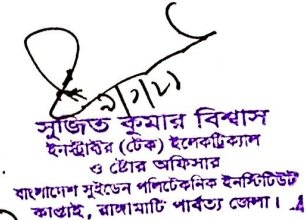 ৯/৭/২১
সুজিত কুমার বিশ্বাস
ইনস্ট্রাক্টর (টেক) ইলেকট্রিক্যাল
ও ষ্টোর অফিসার
বাংলাদেশ সুইডেন পলিটেকনিক ইনস্টিটিউট
কাপ্তাই, রাঙ্গামাটি পার্বত্য জেলা।